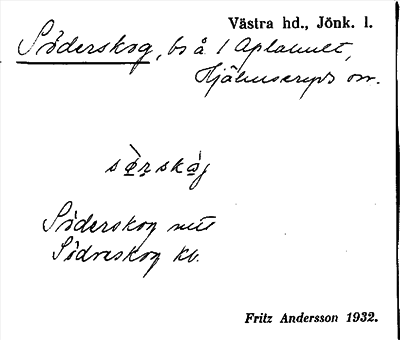 Västra hd., Jönk. l.
Söderskog, bs å 1 Aplamult,
Hjälmseryds sn.
Söderskog
Södreskog kb.
Fritz Andersson 1932.